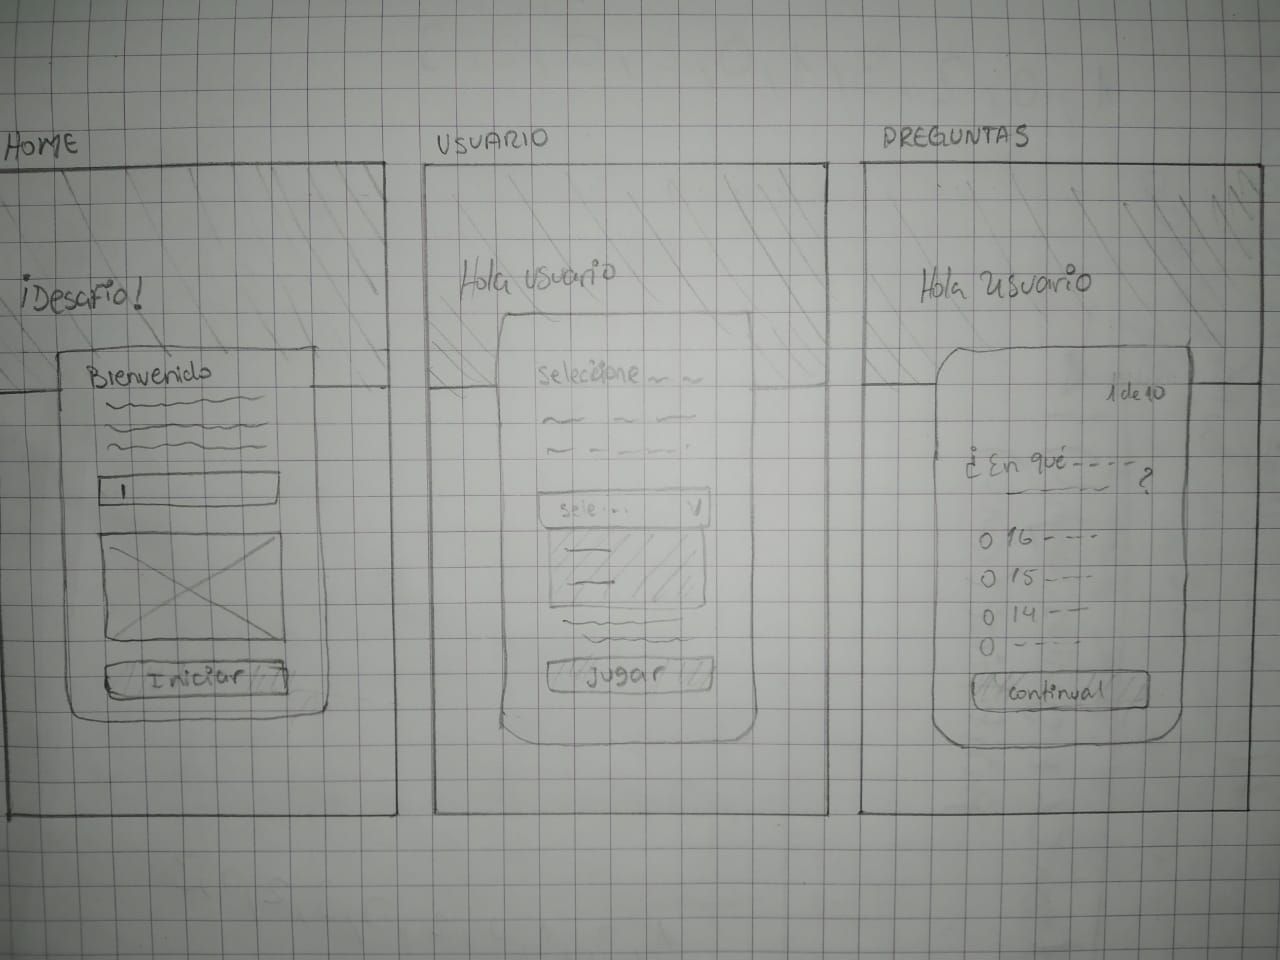 HOME
¡Desafio!
Bienvenido
I
Iniciar
USUARIO
Hola usuario
Seleccione
Sele...
V
Jugar
PREGUNTAS
Hola Usuario
1 de 10
¿En qué ----
?
O 16 ---
O 15 ---
O 14 --
O ----
continual